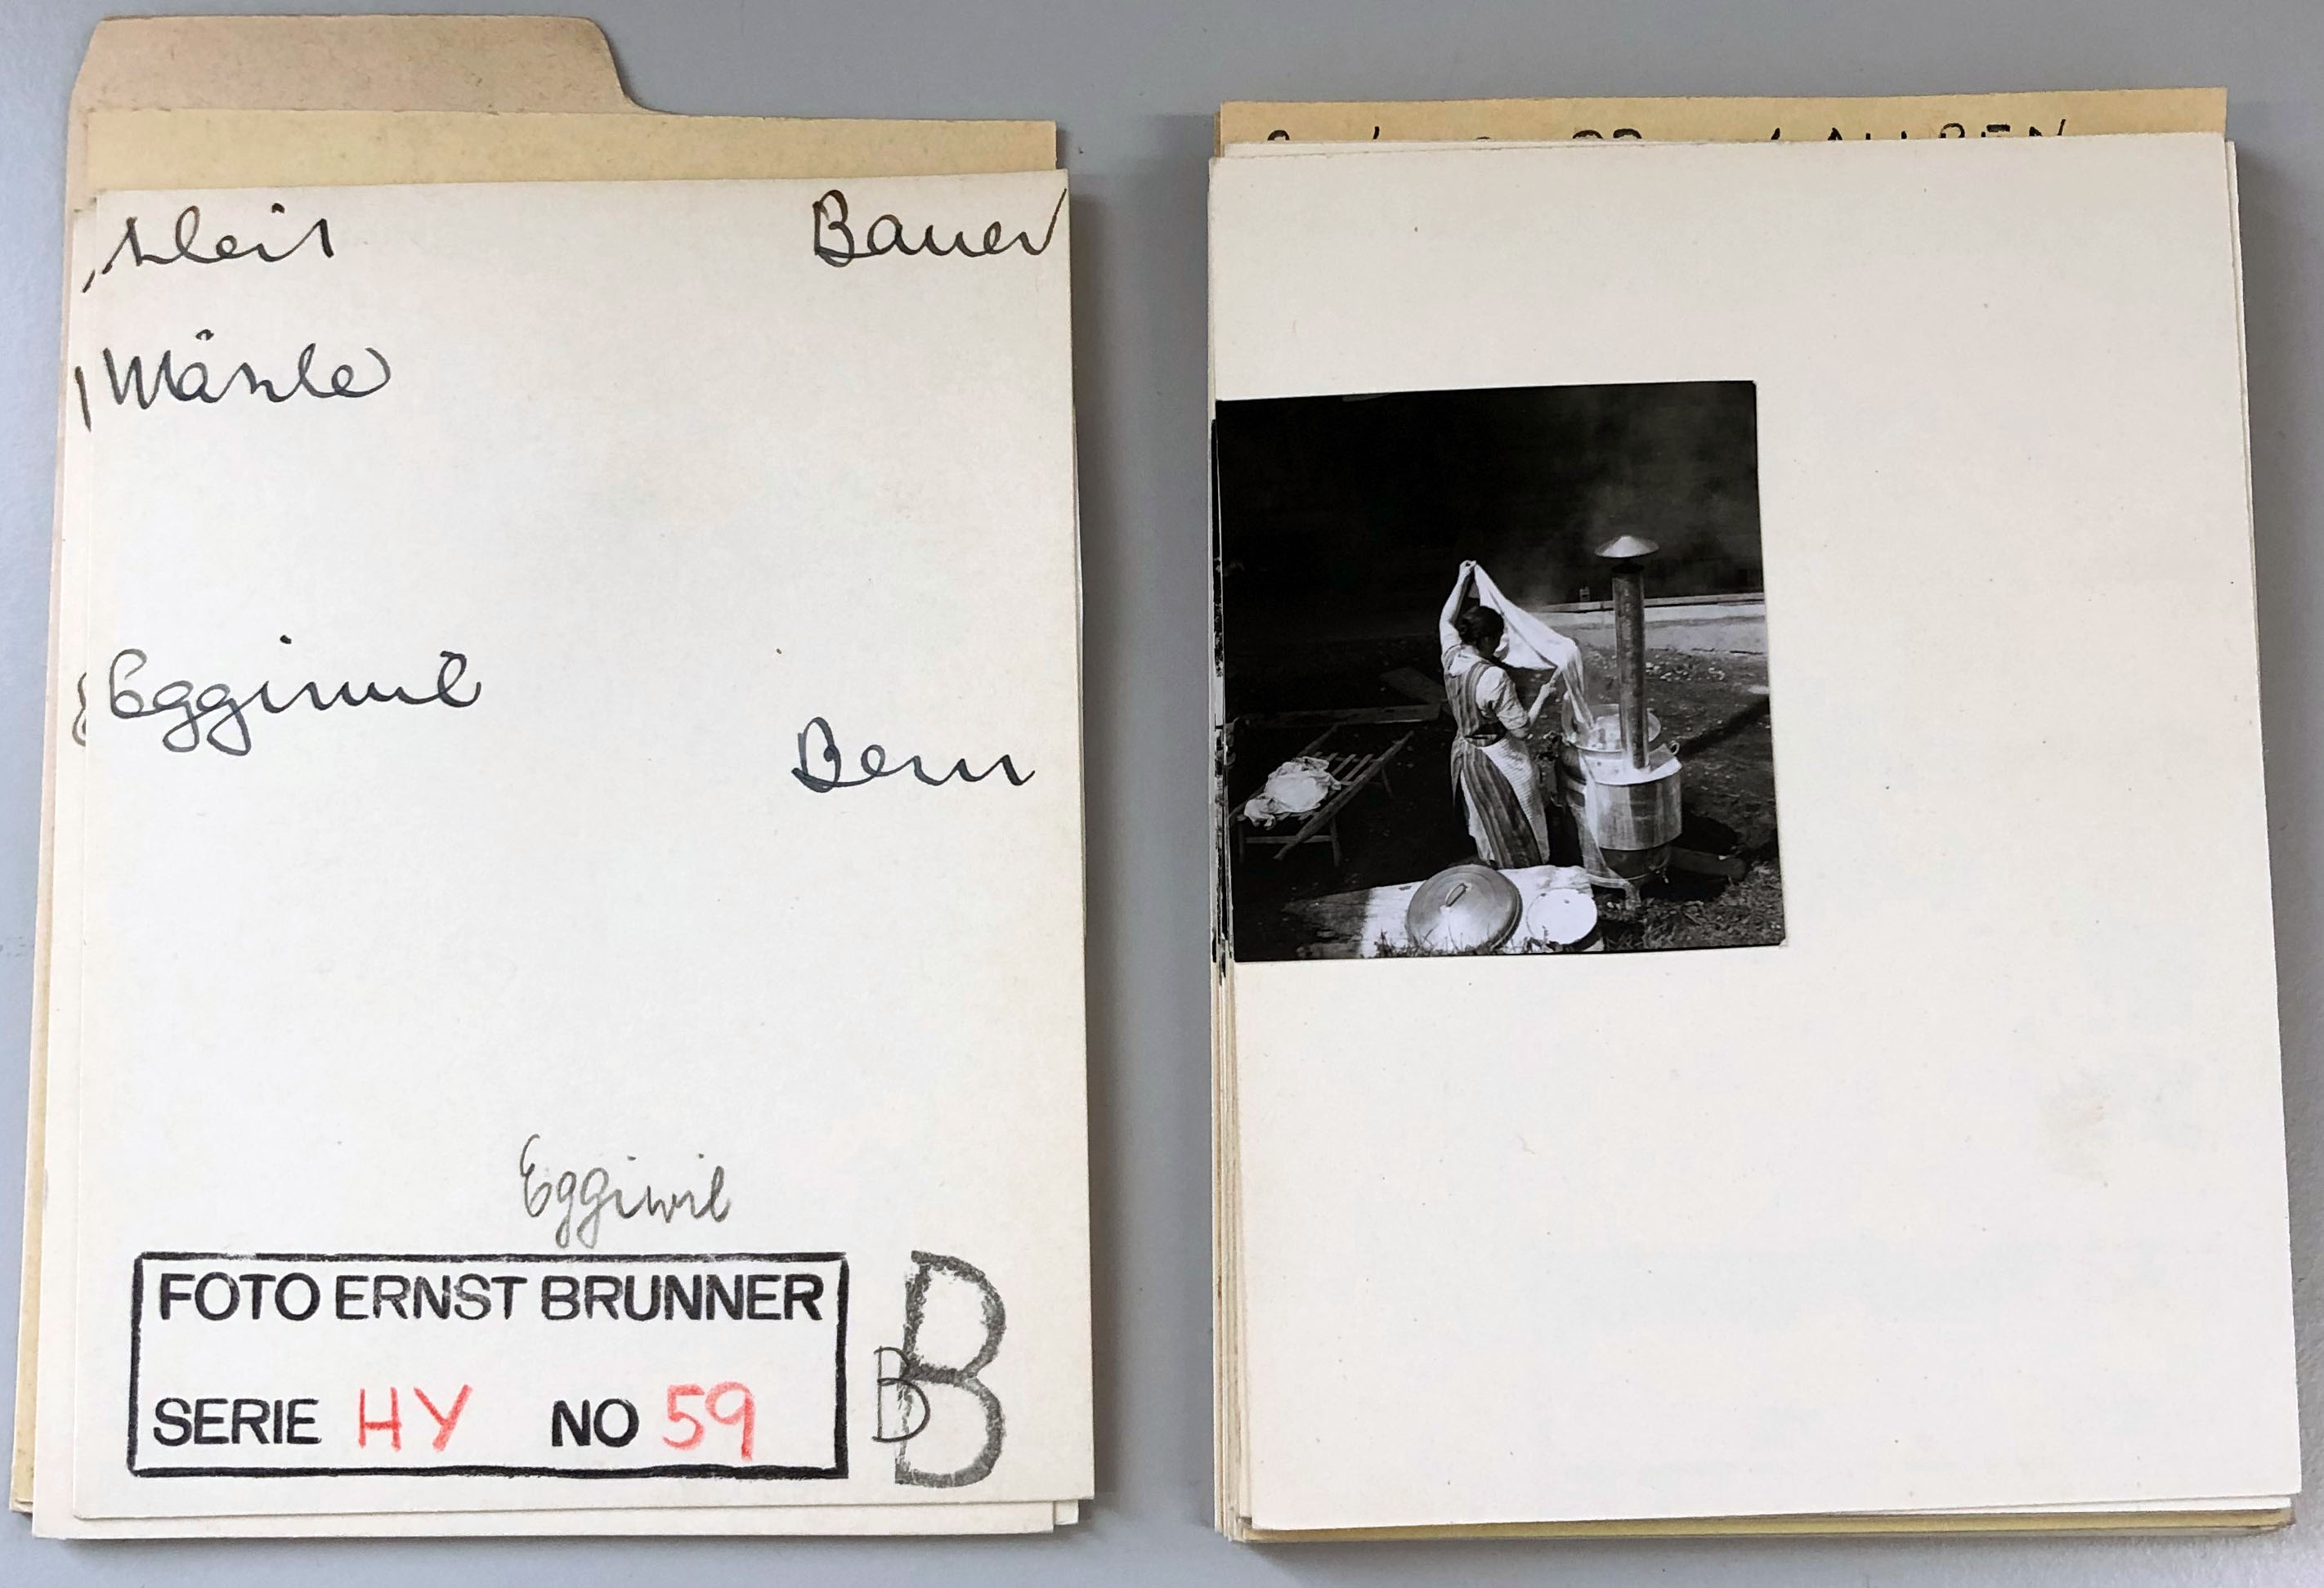 Bauer
Eggiwil
Bern
Eggiwil
FOTO ERNST BRUNNER
SERIE HY NO 59
B
B